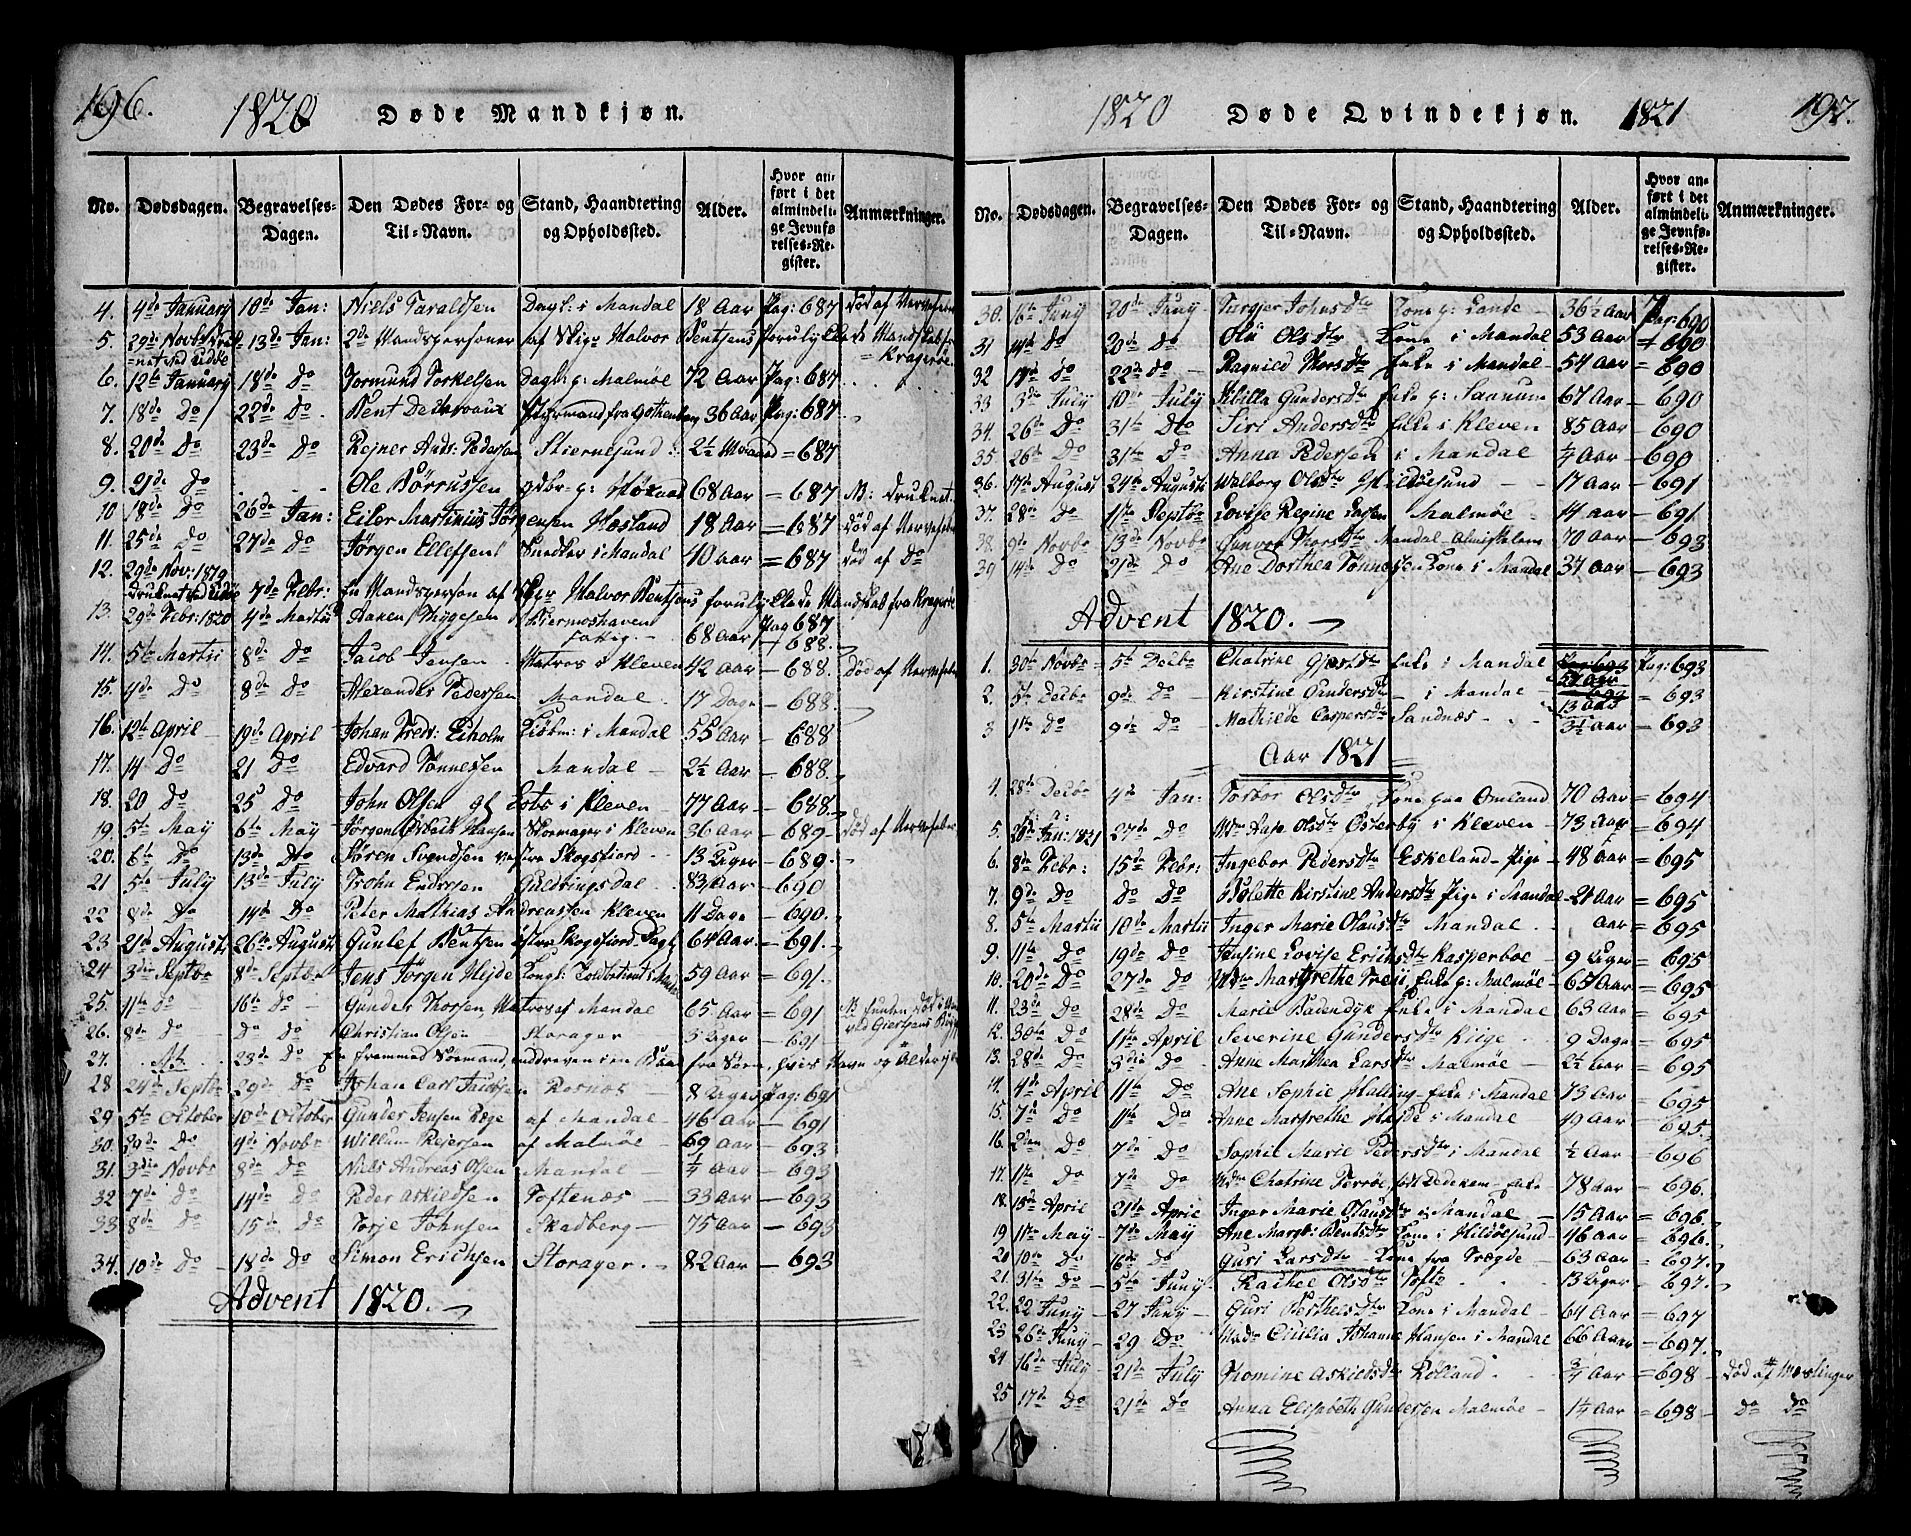 196. 1820 Døde Mandkjøn.
No. Dødsdagen. Begravelses-Dagen. Den Dødes For- og Til-Navn. Stand, Haandtering og Opholdssted. Alder. Hvor anført i det almindelige Jevnførelses-Register. Anmærkninger.
4. 4de January 10de Jan: Niels Taraldsen Dagl: i Mandal 18 Aar Pag: 687 Død af Nervefeber
5. 29de Novbr 13de Jan: 2de Mandspersoner af Skipr Halvor Bentsens forulykkede Mandskab fr Kragerøe
6. 12te January 18de Do Tormund Torkelsen Dagl: p: Malmøe 72 Aar Pag: 687
7. 18de Do 22de Do Bent Styrmand fra Gothenborg 36 Aar Pag: 687
8. 20de Do 23de Do Rejner Ands: Pedersen Stiernesund 2½ Maaned = 687
9. 21de Do Ole Børrussen gdbr p: 68 Aar = 687 N: Druknet
10 18de Do 26de Jan: Eiler Martinius Jørgensen Hæsland 18 Aar = 687 Død af Nervefeber
11. 25de Do 27de Do Jørgen Ellefsen Snedker i Mandal 40 Aar = 687 Død af Do
12. 29de Nov: 1819 Druknet ved 7de Febr: En Mandsperson af Skipr Halvor Bentsens forulykkede Mandskab fra Kragerøe
13. 29de Febr: 1820 4de Martii Daken Thygesen Kiermoshaven fattig 68 Aar Pag 687 688.
14. 5te Martii 8de Do Jacob Jensen Matros i Kleven 42 Aar — 688. Død af Nervefeber
15. 4de Do 8de Do Alexander Pedersen Mandal 17 Dage — 688.
16. 12te April 19de April Johan Fredr: Eiholm Kiøbm: i Mandal 55 Aar — 688
17. 14 Do 21 Do Edvard Tønnessen Mandal 2½ Aar — 688.
18. 20 Do 25 Do John Olsen gl Lots i Kleven 77 Aar — 688.
19. 5te May 6te May Jørgen Hansen Skomager i Kleven 36 Aar — 689 Død af Nervefeber
20. 6te Do 13de Do Søren Svendsen vestre Skogsfiord 13 Uger — 689.
21 5te July 13de July Trohn Endresen Guldringsdal 83 Aar — 690
22 8de Do 14de Do Peter Mathias Andreassen Kleven 11 Dage — 690.
23 21de Augusti 26te Augusti Gunlef Bentsen østre Skogsfiord Dagl 64 Aar — 691.
24 3die Septbr 8de Septbr Jens Jørgen Heyde Kongl: Toldbetient i Mandal 59 Aar — 691.
25. 11te Do 16te Do Gunder Thorsen, Matros af Mandal 65 Aar — 691 N: funden død
26. 8de Do Do Do Christian Olsen Storager 3 Uger — 691
27. 23de Do En fremmed Sømand, inddreven i en Baad fra Søen, hvis Navn og Alder
28 24de Septbr 29de Do Johan Carl Jacobsen Rosnæs 8 Uger Pag: 691
29 5te October 10de October Gunder Jensen Røge af Mandal 46 Aar — 691
30. 29de Do 4de Novbr Willum Reiersen af Malmøe 69 Aar — 693
31. 3die Novbr 8de Do Niels Andreas Olsen Mandal ¼ Aar — 693
32 7de Do 14de Do Peder Askildsen Toftenæs 33 Aar — 693
33 8de Do 15de Do Torje Johnsen Skadberg 75 Aar — 693
34. 10de Do 18de Do Simon Erichsen Storager 82 Aar — 693
Advent 1820.
1820 Døde Qvindekjøn. 1821 197.
No. Dødsdagen. Begravelses-Dagen. Den Dødes For- og Til-Navn. Stand, Haandtering og Opholdssted. Alder. Hvor anført i det almindelige Jevnførelses-Register. Anmærkninger.
30. 16te Juny 20de Juny Turgjer Johnsdtr Kone p: Lande 36½ Aar Pag: 690
31 14de Do 20de Do Olu Olsdtr Kone i Mandal 53 Aar 690
32 17de Do 22de Do Ragnild Thorsdtr Enke i Mandal 54 Aar = 690
33 3de July 10de July Sibilla Gundersdtr Enke p: Saanum 67 Aar — 690
34. 26de Do 31te Do Siri Andersdtr Enke i Kleven 85 Aar — 690
35 26de Do 31te Do Anna Pedersen i Mandal ¼ Aar — 690
36. 17de August 24de Augusti Walborg Olsdtr Hildøesund 17 Aar — 691
37. 28de Do 1ste Septbr Lovise Regine Larsen Malmøe 14 Aar — 691
38. 9de Novbr 13de Novbr Gunvor Thorsdtr Mandal 70 Aar — 693
39 14de Do 21de Do Ane Dorthea Tønnesen Kone i Mandal 37 Aar — 693
Advent 1820.
1. 30te Novbr 5te Decbr Chatrine Gjersdtr Enke i Mandal Pag: 693
2. 5te Decbr 9de Do Kirstine Gundersdtr i Mandal 13 Aar = 693
3 1te Do 9de Do Mathilde Caspersdtr Sandnæs 3½ Aar — 693
Aar 1821
4. 28de Decbr 4de Jan: Torbor Olsdtr Kone paa Omland 70 Aar = 694
5. 26de Jan: 1821 27de Do Mdm Aase Olsdtr Østerby i Kleven 73 Aar = 694
6. 8de Febr: 15de Febr: Ingebor Pedersdtr Eskeland - Pige 48 Aar = 695
7. 9de Do Do Do Bolette Kirstine Andersdtr Pige i Mandal 21 Aar = 695
8. 5te Martii 10de Martii Inger Marie Olausdtr Mandal Aar = 695
9. 11te Do 19de Do Jensine Lovise Erichsdtr Kasperboe 9 Uger = 695
10. 20de Do 27de Do Mdm Margrethe Trey Enke p: Malmøe 65 Aar = 695
11. 23de Do 28de Do Marie Badendyk Enke i Mandal 63 Aar = 695
12. 30te Do 11te April Severine Gundersdtr Riige 9 Dage = 695
13. 28de Do 3die Do Anne Marthea Larsdtr Malmøe 2½ Aar = 695
14. 4de April 11te Do Ane Sophie Halling Enke i Mandal 73 Aar = 695
15. 7de Do 11te Do Anne Margrethe Heyde i Mandal 49 Aar = 695.
16. 2den Do 7de Do Sophie Marie Pedersdtr i Mandal ½ Aar = 696
17. 1te Do 7de Do Mdm Chatrine Ferrøe født Enke 78 Aar = 696.
18. 15de April 21de April Inger Marie Olausdtr Mandal 15 Aar = 696.
19 1te May 7de May Ane Margt: Bentsdtr Kone i Hildøesund 46 Aar = 696.
20 10te Do 16de Do Guri Larsdtr Kone fra Trægde 63 Aar = 697.
21. 31te Do 5te Juny Rachel Olsdtr Tofte 13 Uger = 697.
22. 22 Juny 27 Juny Guri Berthelsdtr Kone i Mandal 64 Aar = 697
23 26de Juny 29 Do Mdm Cicilia Johanne Hansen i Mandal 66 Aar = 697.
24 16de July 21de July Thomine Askieldsdtr Rølland ¾ Aar = 698 Død af Mæslinger
25 17de Do 21de Do Anna Elisabeth Gundersen Malmøe 1¼ Aar = 698 Do Do